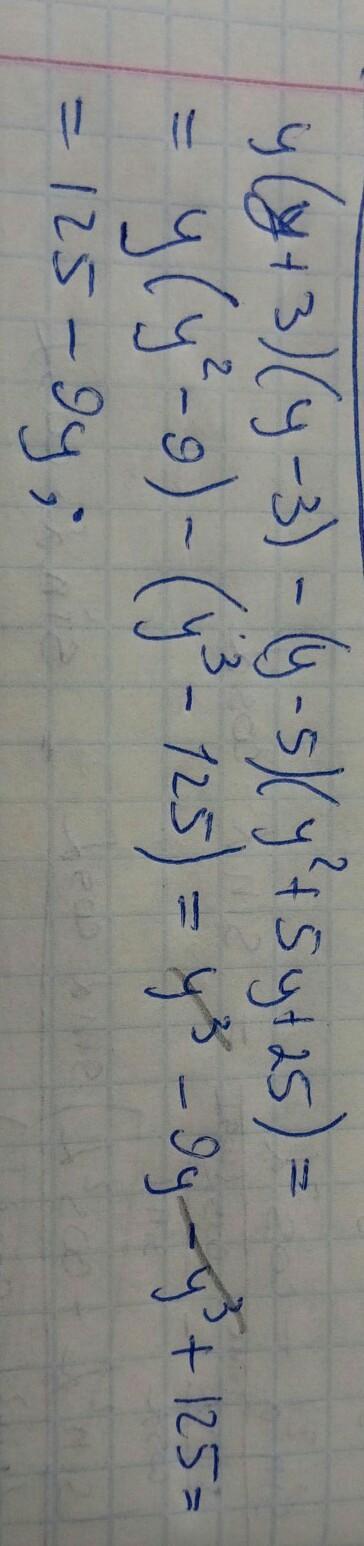 y(y+3)(y-3)-(y-5)(y²+5y+25)=
=y(y²-9)-(y³-125)=y³-9y-y³+125=
=125-9y;